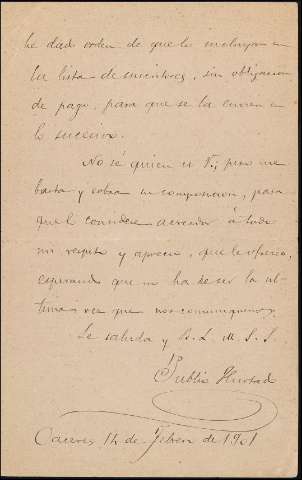 he dado orden de que le incluyan en
la lista de suscritores, sin obligacion
de pago, para que se la envien en
lo sucesivo.
No sé quien es V.; pero me
basta y sobra su composicion, para
que le considere acreedor á todo
mi respeto y aprecio, que le ofrezco,
esperando que no ha de ser la ul-
tima vez que nos comuniquemos.
Le saluda y B. L. M. S. S.
Publio Hurtado
Caceres 14 de Febrero de 1901